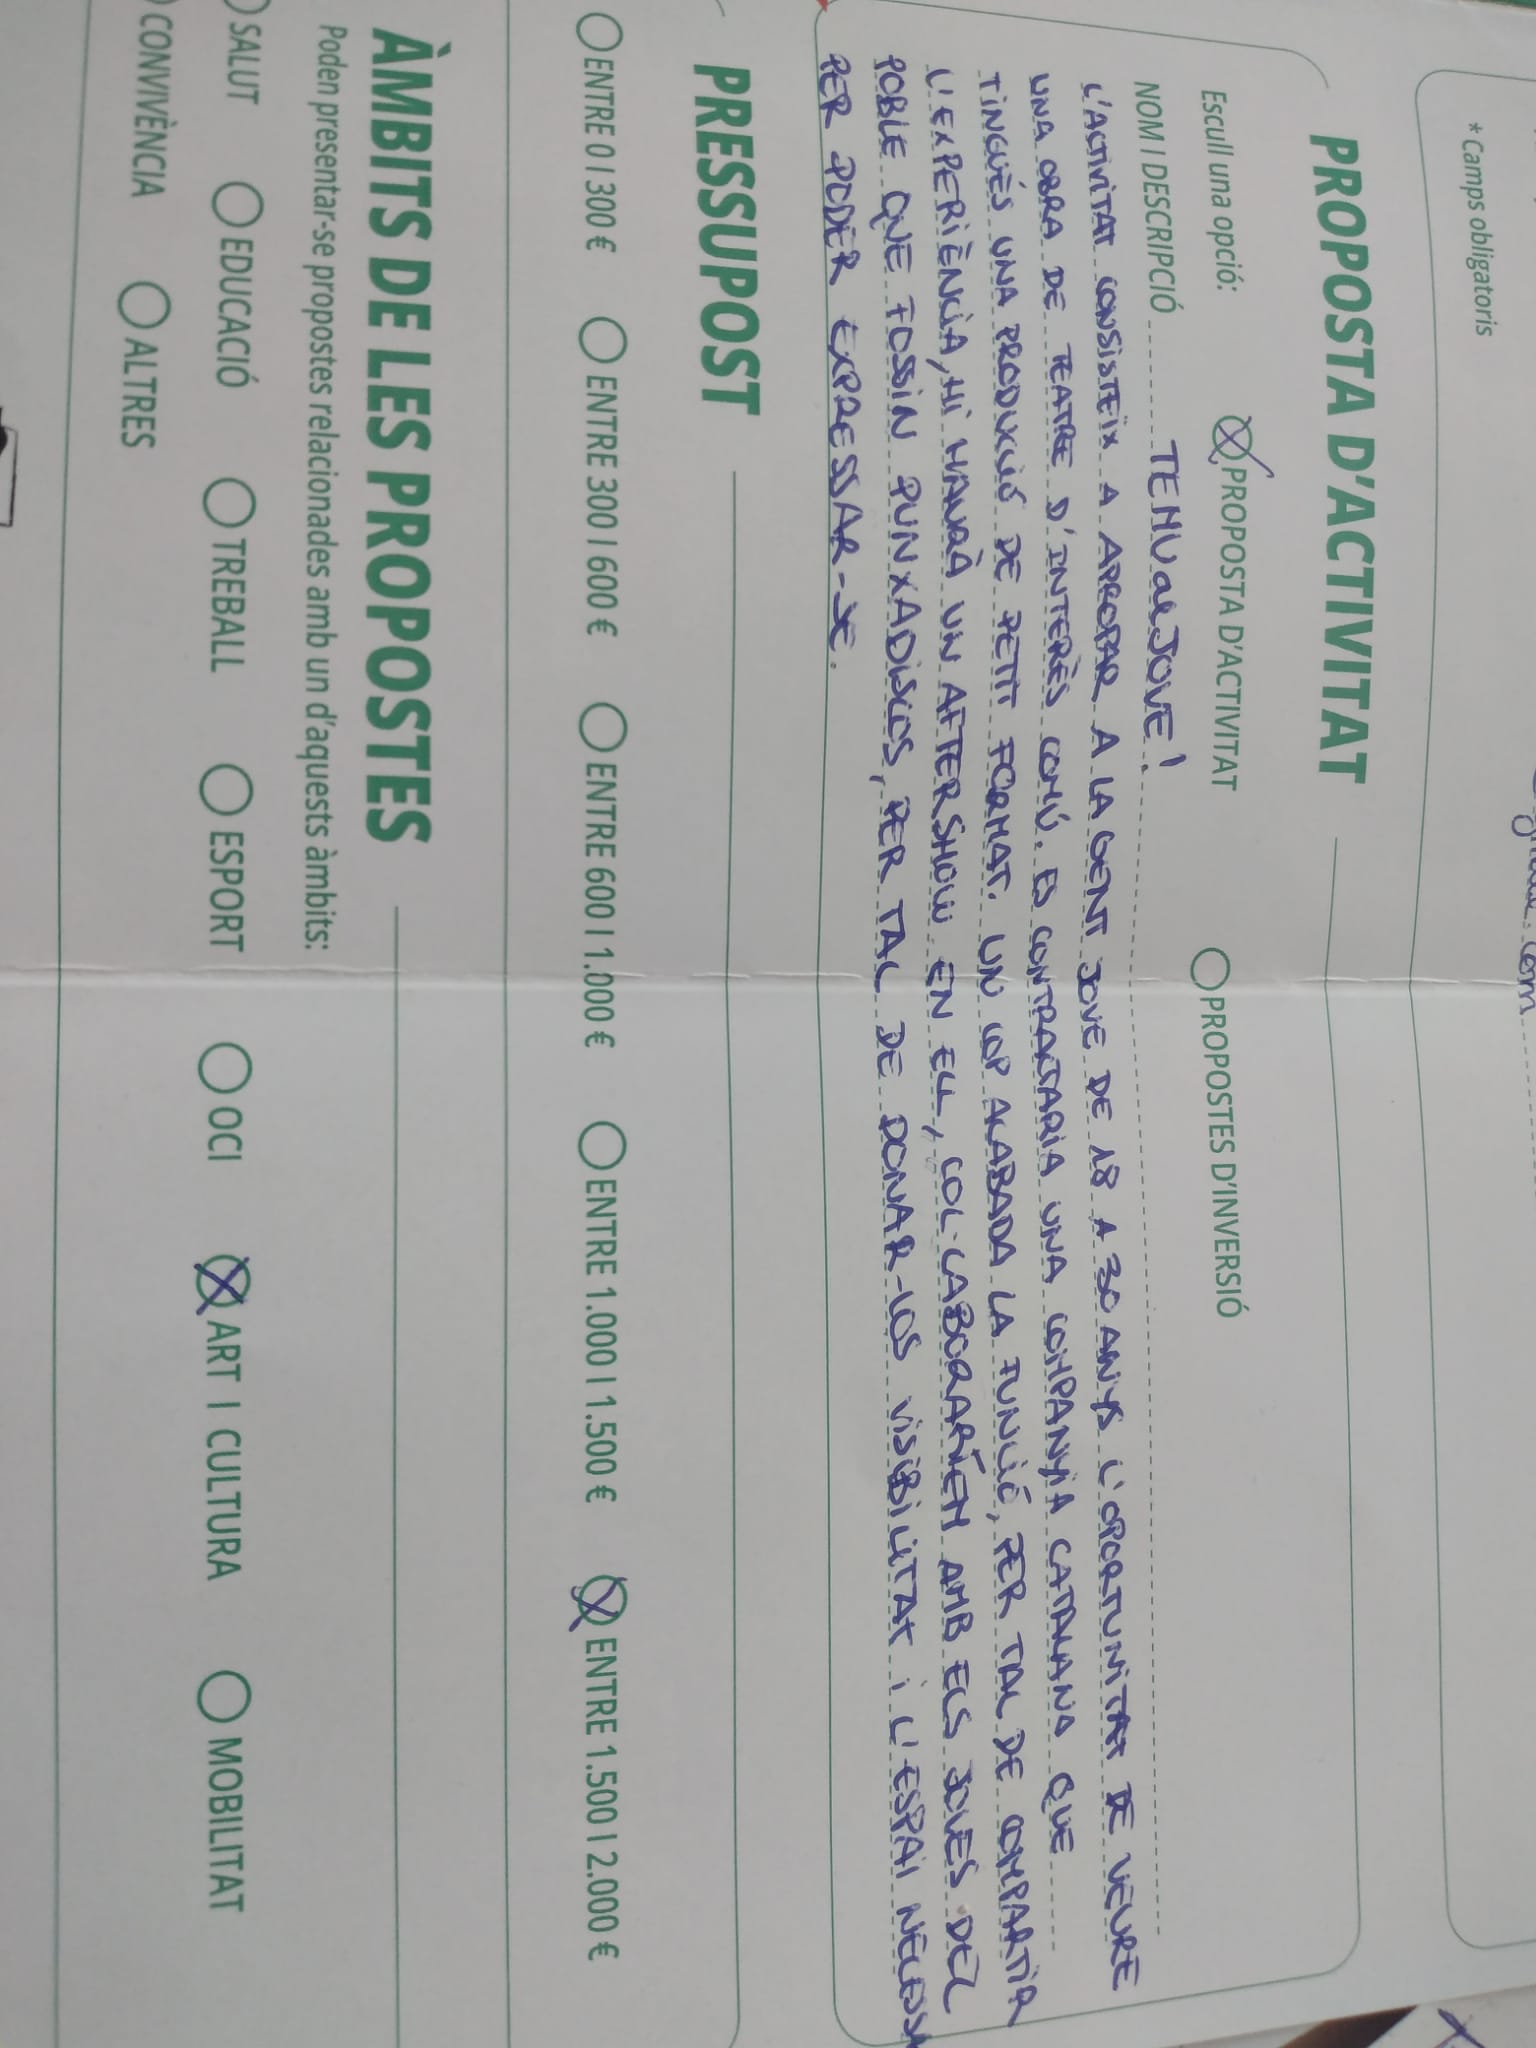 * Camps obligatoris
PROPOSTA D'ACTIVITAT
Escull una opció: PROPOSTA D'ACTIVITAT PROPOSTES D'INVERSIÓ
NOM I DESCRIPCIÓ TEMUalJOVE!
L'ACTIVITAT CONSISTEIX A APROPAR A LA GENT JOVE DE 18 A 30 ANYS L'OPORTUNITAT DE VEURE
UNA OBRA DE TEATRE D'INTERÈS COMÚ. ES CONTRACTARIA UNA COMPANYIA CATALANA QUE
TINGUÉS UNA PRODUCCIÓ DE PETIT FORMAT. UN COP ACABADA LA FUNCIÓ, PER TAL DE COMPARTIR
L'EXPERIÈNCIA, HI HAURÀ UN AFTERSHOW EN ELL, COL·LABORARÍEM AMB ELS JOVES DEL
POBLE QUE FOSSIN PUNXADISCOS, PER TAL DE DONAR-LOS VISIBILITAT I L'ESPAI
PER PODER EXPRESSAR-SE.
PRESSUPOST
ENTRE 0 I 300 € ENTRE 300 I 600 € ENTRE 600 I 1.000 € ENTRE 1.000 I 1.500 € ENTRE 1.500 I 2.000 €
ÀMBITS DE LES PROPOSTES
Poden presentar-se propostes relacionades amb un d'aquests àmbits:
SALUT EDUCACIÓ TREBALL ESPORT OCI ART I CULTURA MOBILITAT
CONVIVÈNCIA ALTRES